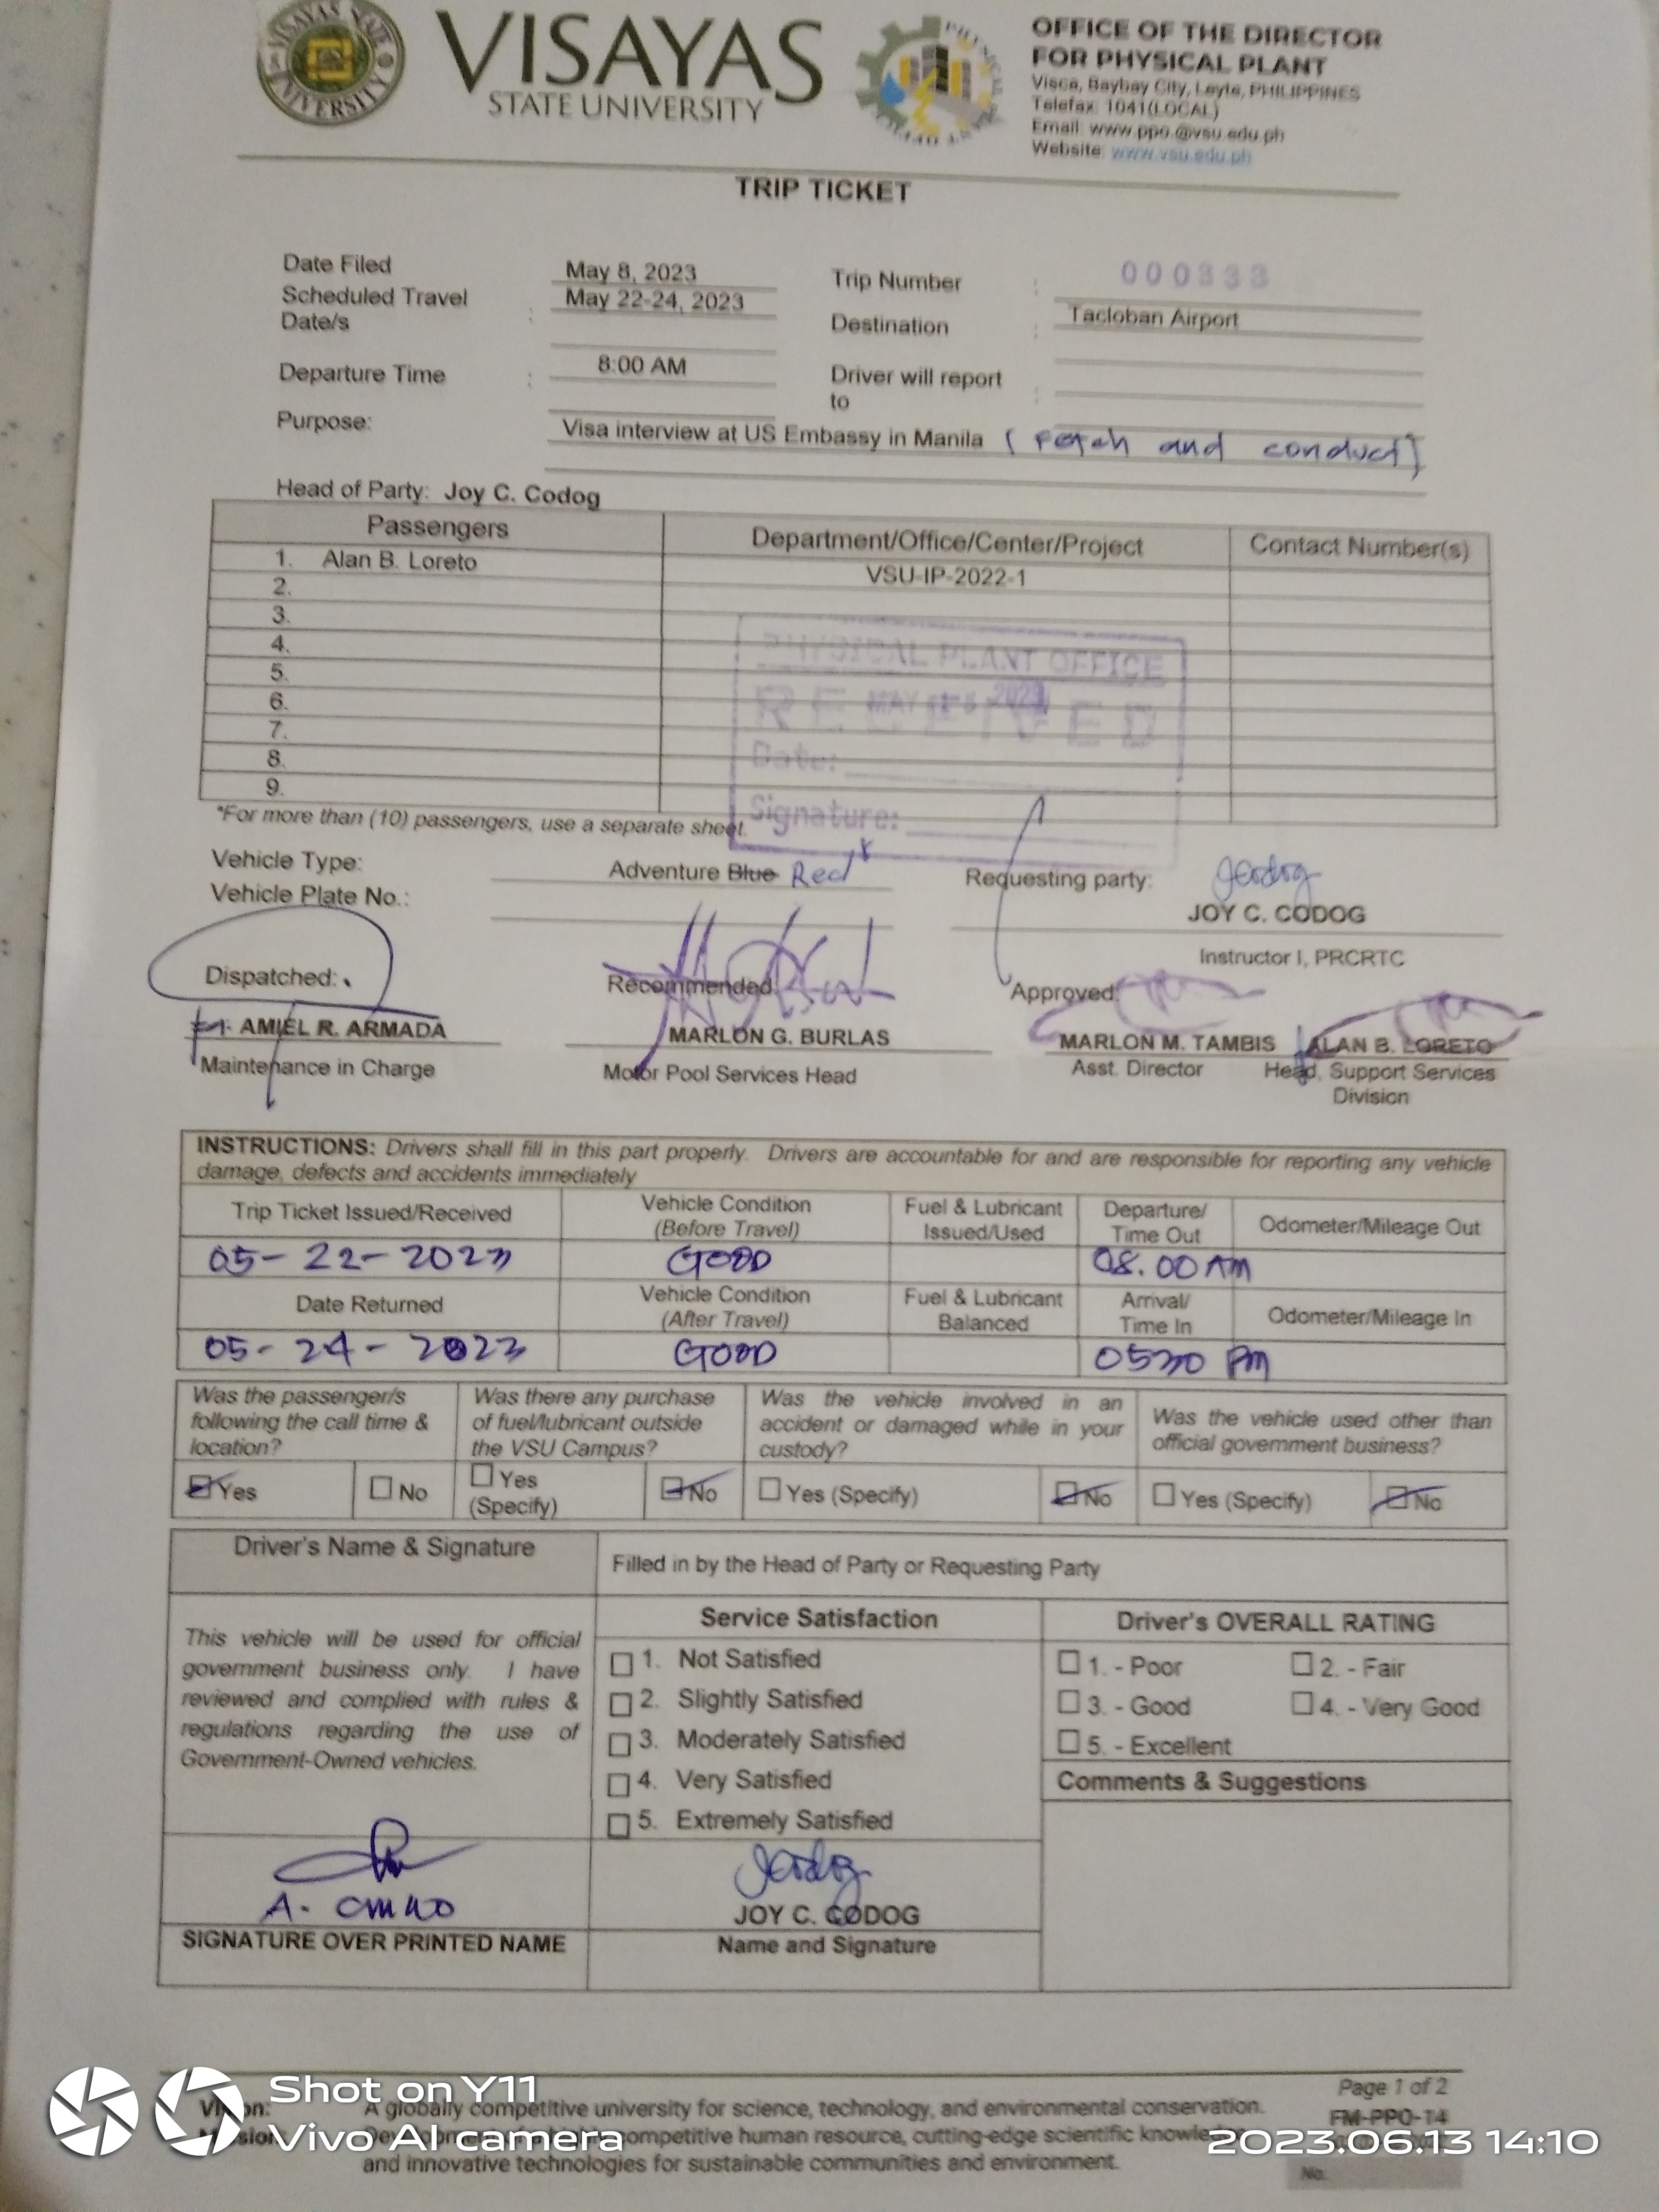 VISAYAS
STATE UNIVERSITY
OFFICE OF THE DIRECTOR
FOR PHYSICAL PLANT
Visca, Baybay City, Leyte, PHILIPPINES
Telefax: 1041(LOCAL)
Email: www.ppo.@vsu.edu.ph
Website: www.vsu.edu.ph
TRIP TICKET
Date Filed May 8, 2023 Trip Number : 000338
Scheduled Travel Date/s : May 22-24, 2023 Destination : Tacloban Airport
Departure Time : 8:00 AM Driver will report to :
Purpose: Visa interview at US Embassy in Manila (Fetch and conduct)
Head of Party: Joy C. Codog
Passengers Department/Office/Center/Project Contact Number(s)
1. Alan B. Loreto VSU-IP-2022-1
2.
3.
4.
5.
6.
7.
8.
9.
PHYSICAL PLANT OFFICE
RECEIVED
MAY 2023
Date:
Signature:
*For more than (10) passengers, use a separate sheet.
Vehicle Type: Adventure Blue Red
Vehicle Plate No.:
Requesting party:
JOY C. CODOG
Instructor I, PRCRTC
Dispatched: Recommended Approved:
AMIEL R. ARMADA MARLON G. BURLAS MARLON M. TAMBIS ALAN B. LORETO
Maintenance in Charge Motor Pool Services Head Asst. Director Head, Support Services
Division
INSTRUCTIONS: Drivers shall fill in this part properly. Drivers are accountable for and are responsible for reporting any vehicle
damage, defects and accidents immediately
Trip Ticket Issued/Received Vehicle Condition (Before Travel) Fuel & Lubricant Issued/Used Departure/ Time Out Odometer/Mileage Out
05-22-2023 GOOD 08.00 AM
Date Returned Vehicle Condition (After Travel) Fuel & Lubricant Balanced Arrival/ Time In Odometer/Mileage In
05-24-2023 GOOD 0530 PM
Was the passenger/s following the call time & location? Was there any purchase of fuel/lubricant outside the VSU Campus? Was the vehicle involved in an accident or damaged while in your custody? Was the vehicle used other than official government business?
Yes No Yes (Specify) No Yes (Specify) No Yes (Specify) No
Driver's Name & Signature
Filled in by the Head of Party or Requesting Party
This vehicle will be used for official
government business only. I have
reviewed and complied with rules &
regulations regarding the use of
Government-Owned vehicles.
Service Satisfaction
1. Not Satisfied
2. Slightly Satisfied
3. Moderately Satisfied
4. Very Satisfied
5. Extremely Satisfied
Driver's OVERALL RATING
1. - Poor 2. - Fair
3. - Good 4. - Very Good
5. - Excellent
Comments & Suggestions
A.
SIGNATURE OVER PRINTED NAME
JOY C. CODOG
Name and Signature
Page 1 of 2
FM-PPO-14
No.
A globally competitive university for science, technology, and environmental conservation.
competitive human resource, cutting-edge scientific
and innovative technologies for sustainable communities and environment.
Shot on Y11
Vivo AI camera
2023.06.13 14:10